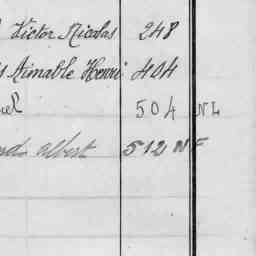 Victor Nicolas 248
Aimable Henri 404
504 NL
albert 512 NF